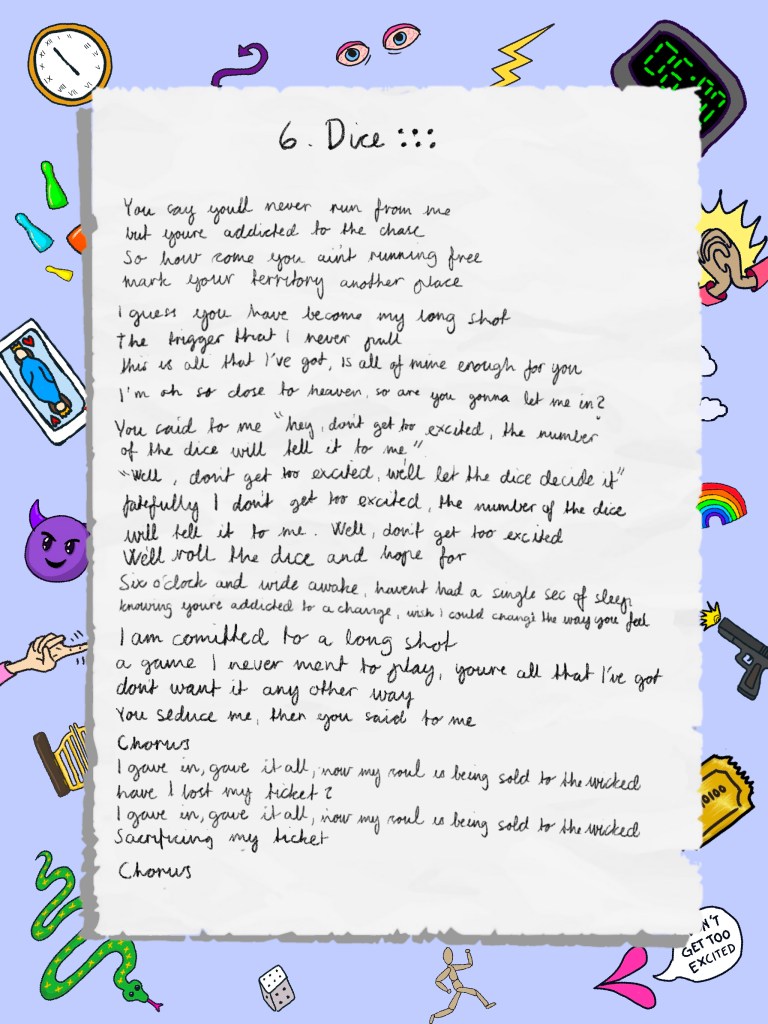 6. Dice :::
You say youll never run from me
but youre addicted to the chase
So how come you ain't running free
mark your territory another place
I guess you have become my long shot
the trigger that I never pull
this is all that I've got, is all of mine enough for you
I'm oh so close to heaven, so are you gonna let me in?
You said to me "hey, don't get too excited, the number
of the dice will tell it to me"
"Well, don't get too excited, we'll let the dice decide it"
fatefully I don't get too excited, the number of the dice
will tell it to me. Well, don't get too excited
We'll roll the dice and hope for
Six o'clock and wide awake, havent had a single sec of sleep
knowing you're addicted to a change, wish I could change the way you feel
I am comitted to a long shot
a game I never ment to play, youre all that I've got
dont want it any other way
You seduce me, then you said to me
Chorus
I gave in, gave it all, now my soul is being sold to the wicked
have I lost my ticket?
I gave in, gave it all, now my soul is being sold to the wicked
Sacrificing my ticket
Chorus
06:00
10100
N'T
GET TOO
EXCITED